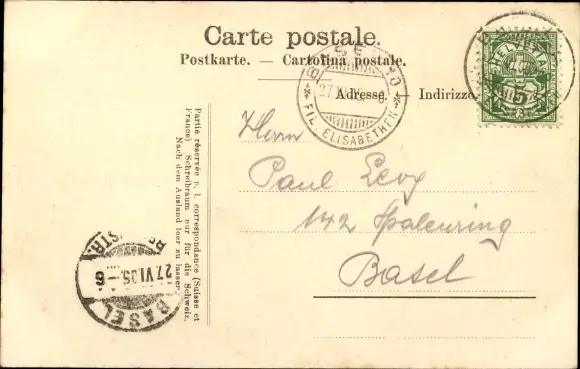 Carte postale.
Postkarte. — Cartolina postale.
Adresse. — Indirizzo.
HELVETIA
FIL. ELISABETHEN
Herrn
Paul Levy
142 Spalenring
Basel
Partie réservée p. l. correspondance (Suisse et
France) Schreibraum nur für die Schweiz.
Nach dem Ausland leer zu lassen.
27.VI.05.-6
BASEL